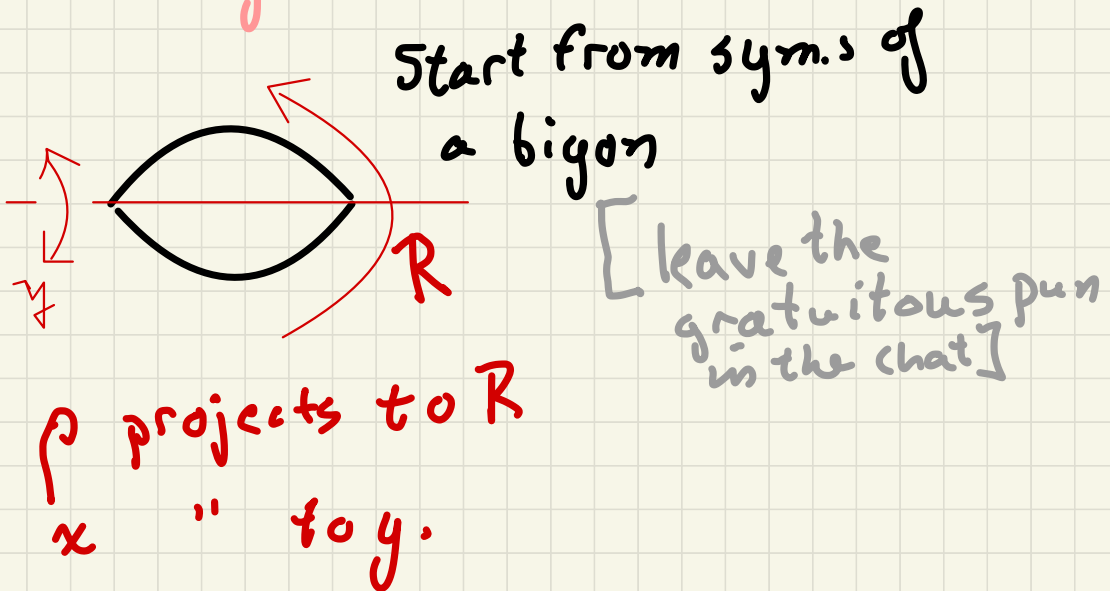 Start from sym.s of
a bigon
R
y
[leave the
gratuitous pun
in the chat]
ρ projects to R
x " to y.